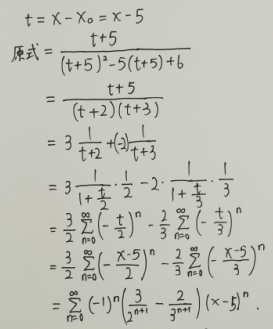 t = x - x₀ = x - 5
原式 = \frac{t+5}{(t+5)^2-5(t+5)+6}
= \frac{t+5}{(t+2)(t+3)}
= 3\frac{1}{t+2}+(-2)\frac{1}{t+3}
= 3\frac{1}{1+\frac{t}{2}}·\frac{1}{2}-2·\frac{1}{1+\frac{t}{3}}·\frac{1}{3}
= \frac{3}{2}\sum_{n=0}^{∞}(-\frac{t}{2})^n-\frac{2}{3}\sum_{n=0}^{∞}(-\frac{t}{3})^n
= \frac{3}{2}\sum_{n=0}^{∞}(-\frac{x-5}{2})^n-\frac{2}{3}\sum_{n=0}^{∞}(-\frac{x-5}{3})^n
= \sum_{n=0}^{∞}(-1)^n(\frac{3}{2^{n+1}}-\frac{2}{3^{n+1}})(x-5)^n.